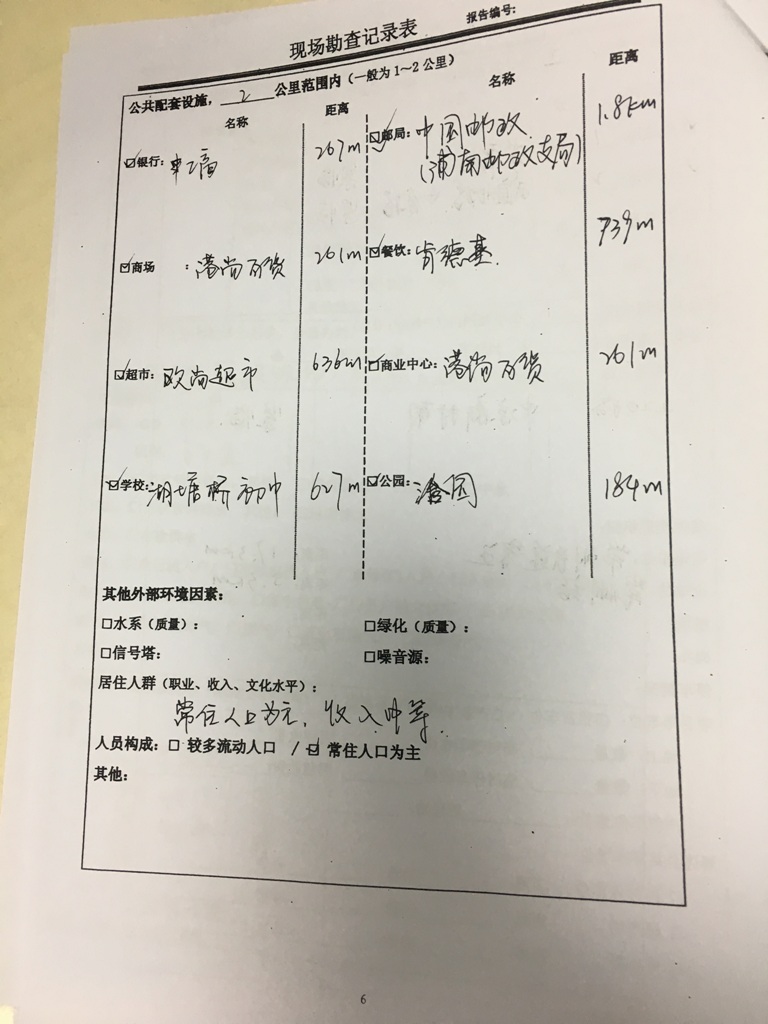 报告编号:
现场勘查记录表
公共配套设施, 2 公里范围内(一般为1~2公里)
名称 距离 名称 距离
☑银行: 267m ☑邮局: 中国邮政 1.8km
(湖南邮政支局)
☑商场 : 港尚百货 261m ☑餐饮: 肯德基 739m
☑超市: 欧尚超市 636m ☑商业中心: 港尚百货 261m
☑学校: 湖塘桥初中 627m ☑公园: 184m
其他外部环境因素:
☐水系(质量): ☐绿化(质量):
☐信号塔: ☐噪音源:
居住人群(职业、收入、文化水平):
常住人口为主, 收入中等.
人员构成: ☐ 较多流动人口 / ☑ 常住人口为主
其他:
6